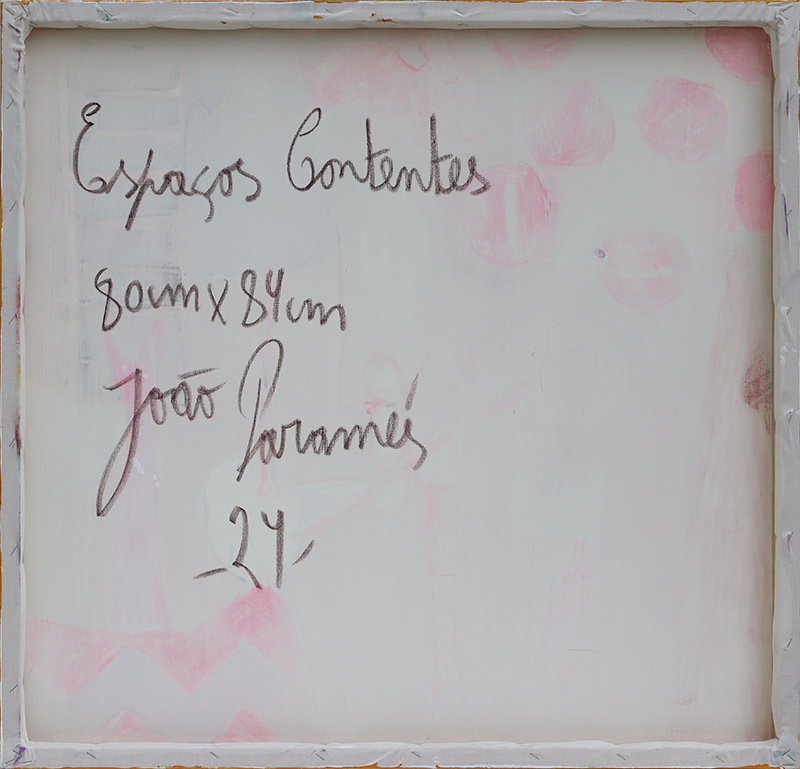 Espaços Contentes
80cm x 84cm
João Paramés
-24-